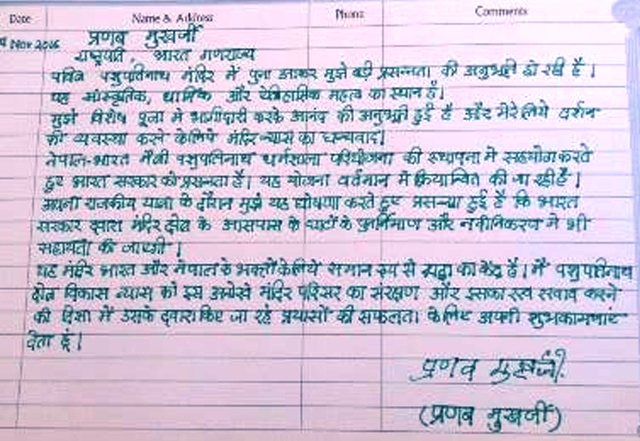 Date Name & Address Phone Comments
Nov 2016 प्रणब मुखर्जी
राष्ट्रपति, भारत गणराज्य
पवित्र पशुपतिनाथ मंदिर में पुनः आकर मुझे बड़ी प्रसन्नता की अनुभूति हो रही है।
यह सांस्कृतिक, धार्मिक और ऐतिहासिक महत्व का स्थान है।
मुझे विशेष पूजा में भागीदारी करके आनंद की अनुभूती हुई है और मेरे लिये दर्शन
की व्यवस्था करने के लिये मंदिर न्यास का धन्यवाद।
नेपाल-भारत मैत्री पशुपतिनाथ धर्मशाला परियोजना की स्थापना में सहयोग करते
हुए भारत सरकार को प्रसन्नता है। यह योजना वर्तमान में क्रियान्वित की जा रही है।
अपनी राजकीय यात्रा के दौरान मुझे यह घोषणा करते हुए प्रसन्नता हुई है कि भारत
सरकार द्वारा मंदिर क्षेत्र के आसपास के घाटों के पुनर्निमाण और नवीनिकरण में भी
सहायता की जाएगी।
यह मंदिर भारत और नेपाल के भक्तों के लिये समान रूप से श्रद्धा का केंद्र है। मैं पशुपतिनाथ
क्षेत्र विकास न्यास को इस अनोखे मंदिर परिसर का संरक्षण और इसका रख रखाव करने
की दिशा में उसके द्वारा किए जा रहे प्रयासों की सफलता के लिए अपनी शुभकामनाएं
देता हूं।
प्रणब मुखर्जी
(प्रणब मुखर्जी)